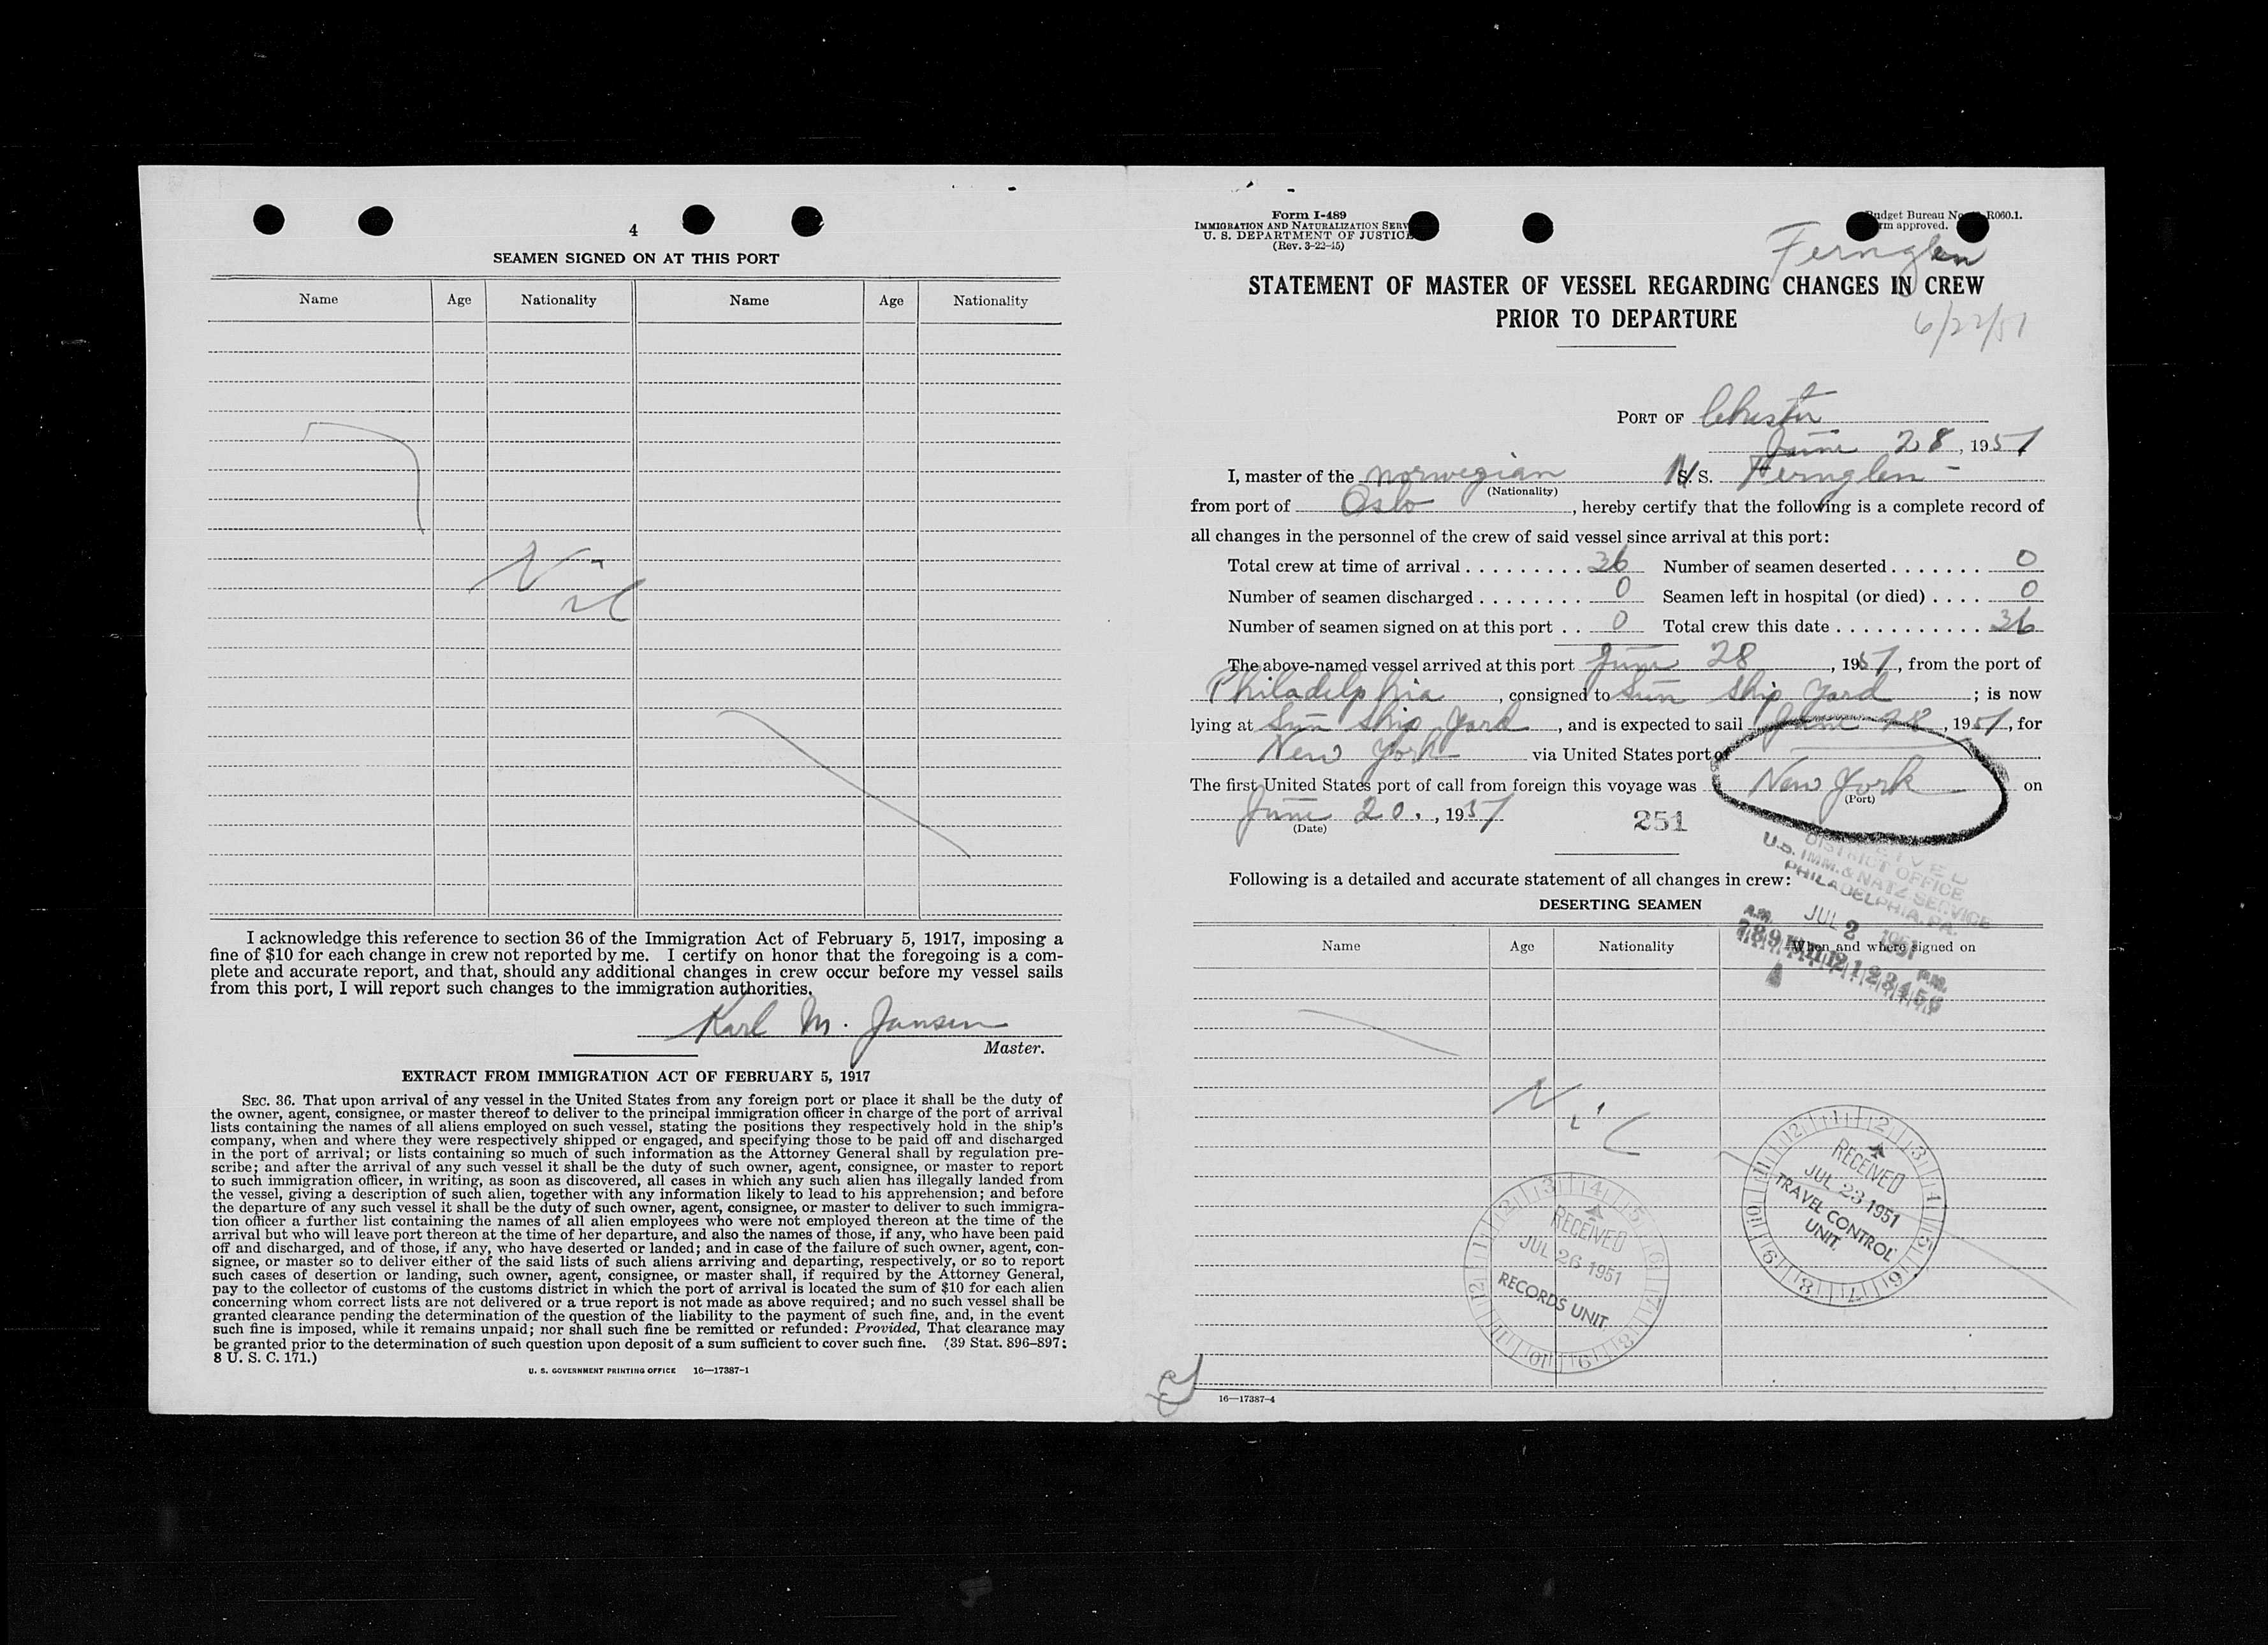 4
SEAMEN SIGNED ON AT THIS PORT
Name Age Nationality Name Age Nationality
Nil
I acknowledge this reference to section 36 of the Immigration Act of February 5, 1917, imposing a
fine of $10 for each change in crew not reported by me. I certify on honor that the foregoing is a com-
plete and accurate report, and that, should any additional changes in crew occur before my vessel sails
from this port, I will report such changes to the immigration authorities.
Karl M. Jansen
Master.
EXTRACT FROM IMMIGRATION ACT OF FEBRUARY 5, 1917
SEC. 36. That upon arrival of any vessel in the United States from any foreign port or place it shall be the duty of
the owner, agent, consignee, or master thereof to deliver to the principal immigration officer in charge of the port of arrival
lists containing the names of all aliens employed on such vessel, stating the positions they respectively hold in the ship's
company, when and where they were respectively shipped or engaged, and specifying those to be paid off and discharged
in the port of arrival; or lists containing so much of such information as the Attorney General shall by regulation pre-
scribe; and after the arrival of any such vessel it shall be the duty of such owner, agent, consignee, or master to report
to such immigration officer, in writing, as soon as discovered, all cases in which any such alien has illegally landed from
the vessel, giving a description of such alien, together with any information likely to lead to his apprehension; and before
the departure of any such vessel it shall be the duty of such owner, agent, consignee, or master to deliver to such immigra-
tion officer a further list containing the names of all alien employees who were not employed thereon at the time of the
arrival but who will leave port thereon at the time of her departure, and also the names of those, if any, who have been paid
off and discharged, and of those, if any, who have deserted or landed; and in case of the failure of such owner, agent, con-
signee, or master so to deliver either of the said lists of such aliens arriving and departing, respectively, or so to report
such cases of desertion or landing, such owner, agent, consignee, or master shall, if required by the Attorney General,
pay to the collector of customs of the customs district in which the port of arrival is located the sum of $10 for each alien
concerning whom correct lists are not delivered or a true report is not made as above required; and no such vessel shall be
granted clearance pending the determination of the question of the liability to the payment of such fine, and, in the event
such fine is imposed, while it remains unpaid; nor shall such fine be remitted or refunded: Provided, That clearance may
be granted prior to the determination of such question upon deposit of a sum sufficient to cover such fine. (39 Stat. 896–897;
8 U. S. C. 171.)
U. S. GOVERNMENT PRINTING OFFICE 16—17387-1
Form I-489
IMMIGRATION AND NATURALIZATION SERV
U. S. DEPARTMENT OF JUSTICE
(Rev. 3-22-45)
Budget Bureau No. R060.1.
rm approved.
Fernglen
STATEMENT OF MASTER OF VESSEL REGARDING CHANGES IN CREW
PRIOR TO DEPARTURE
6/22/51
PORT OF Chester
June 28, 1951
I, master of the norwegian M/S. S. Fernglen -
(Nationality)
from port of Oslo, hereby certify that the following is a complete record of
all changes in the personnel of the crew of said vessel since arrival at this port:
Total crew at time of arrival 36 Number of seamen deserted 0
Number of seamen discharged 0 Seamen left in hospital (or died) 0
Number of seamen signed on at this port 0 Total crew this date 36
The above-named vessel arrived at this port June 28, 1951, from the port of
Philadelphia, consigned to Sun Ship Yard; is now
lying at Sun Ship Yard, and is expected to sail June 28, 1951, for
New York via United States port of
The first United States port of call from foreign this voyage was New York on
(Port)
June 20., 1951
(Date)
251
Following is a detailed and accurate statement of all changes in crew:
RECEIVED
DISTRICT OFFICE
U.S. IMM. & NATZ. SERVICE
PHILADELPHIA, PA.
JUL 2 1951
A.M. P.M.
7 8 9 10 11 12 1 2 3 4 5 6
DESERTING SEAMEN
Name Age Nationality When and where signed on
Nil
RECEIVED
JUL 23 1951
TRAVEL CONTROL
UNIT.
1 2 3 4 5 6 7 8 9 10 11 12
RECEIVED
JUL 26 1951
RECORDS UNIT.
1 2 3 4 5 6 7 8 9 10 11 12
16—17387-4